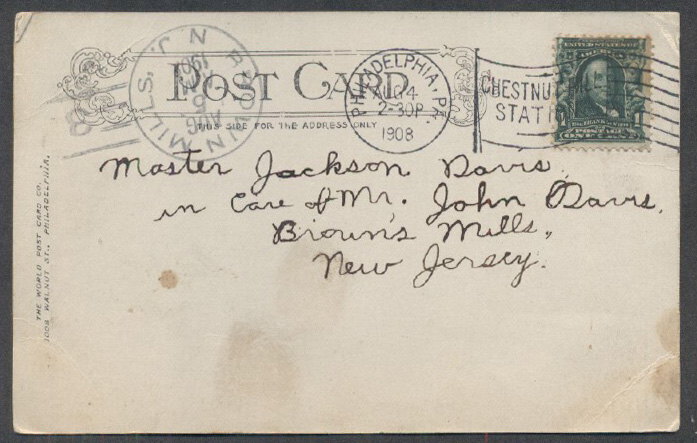 POST CARD
THIS SIDE FOR THE ADDRESS ONLY
BROWN MILLS, N.J.
AUG
PHILADELPHIA, PA.
AUG 4
2-30P
1908
CHESTNUT HILL
STATION
UNITED STATES OF AMERICA
1 1
POSTAGE
ONE CENT
Master Jackson Davis.
in Care of Mr. John Davis.
Brown's Mills,
New Jersey.
THE WORLD POST CARD CO.
1008 WALNUT ST., PHILADELPHIA.